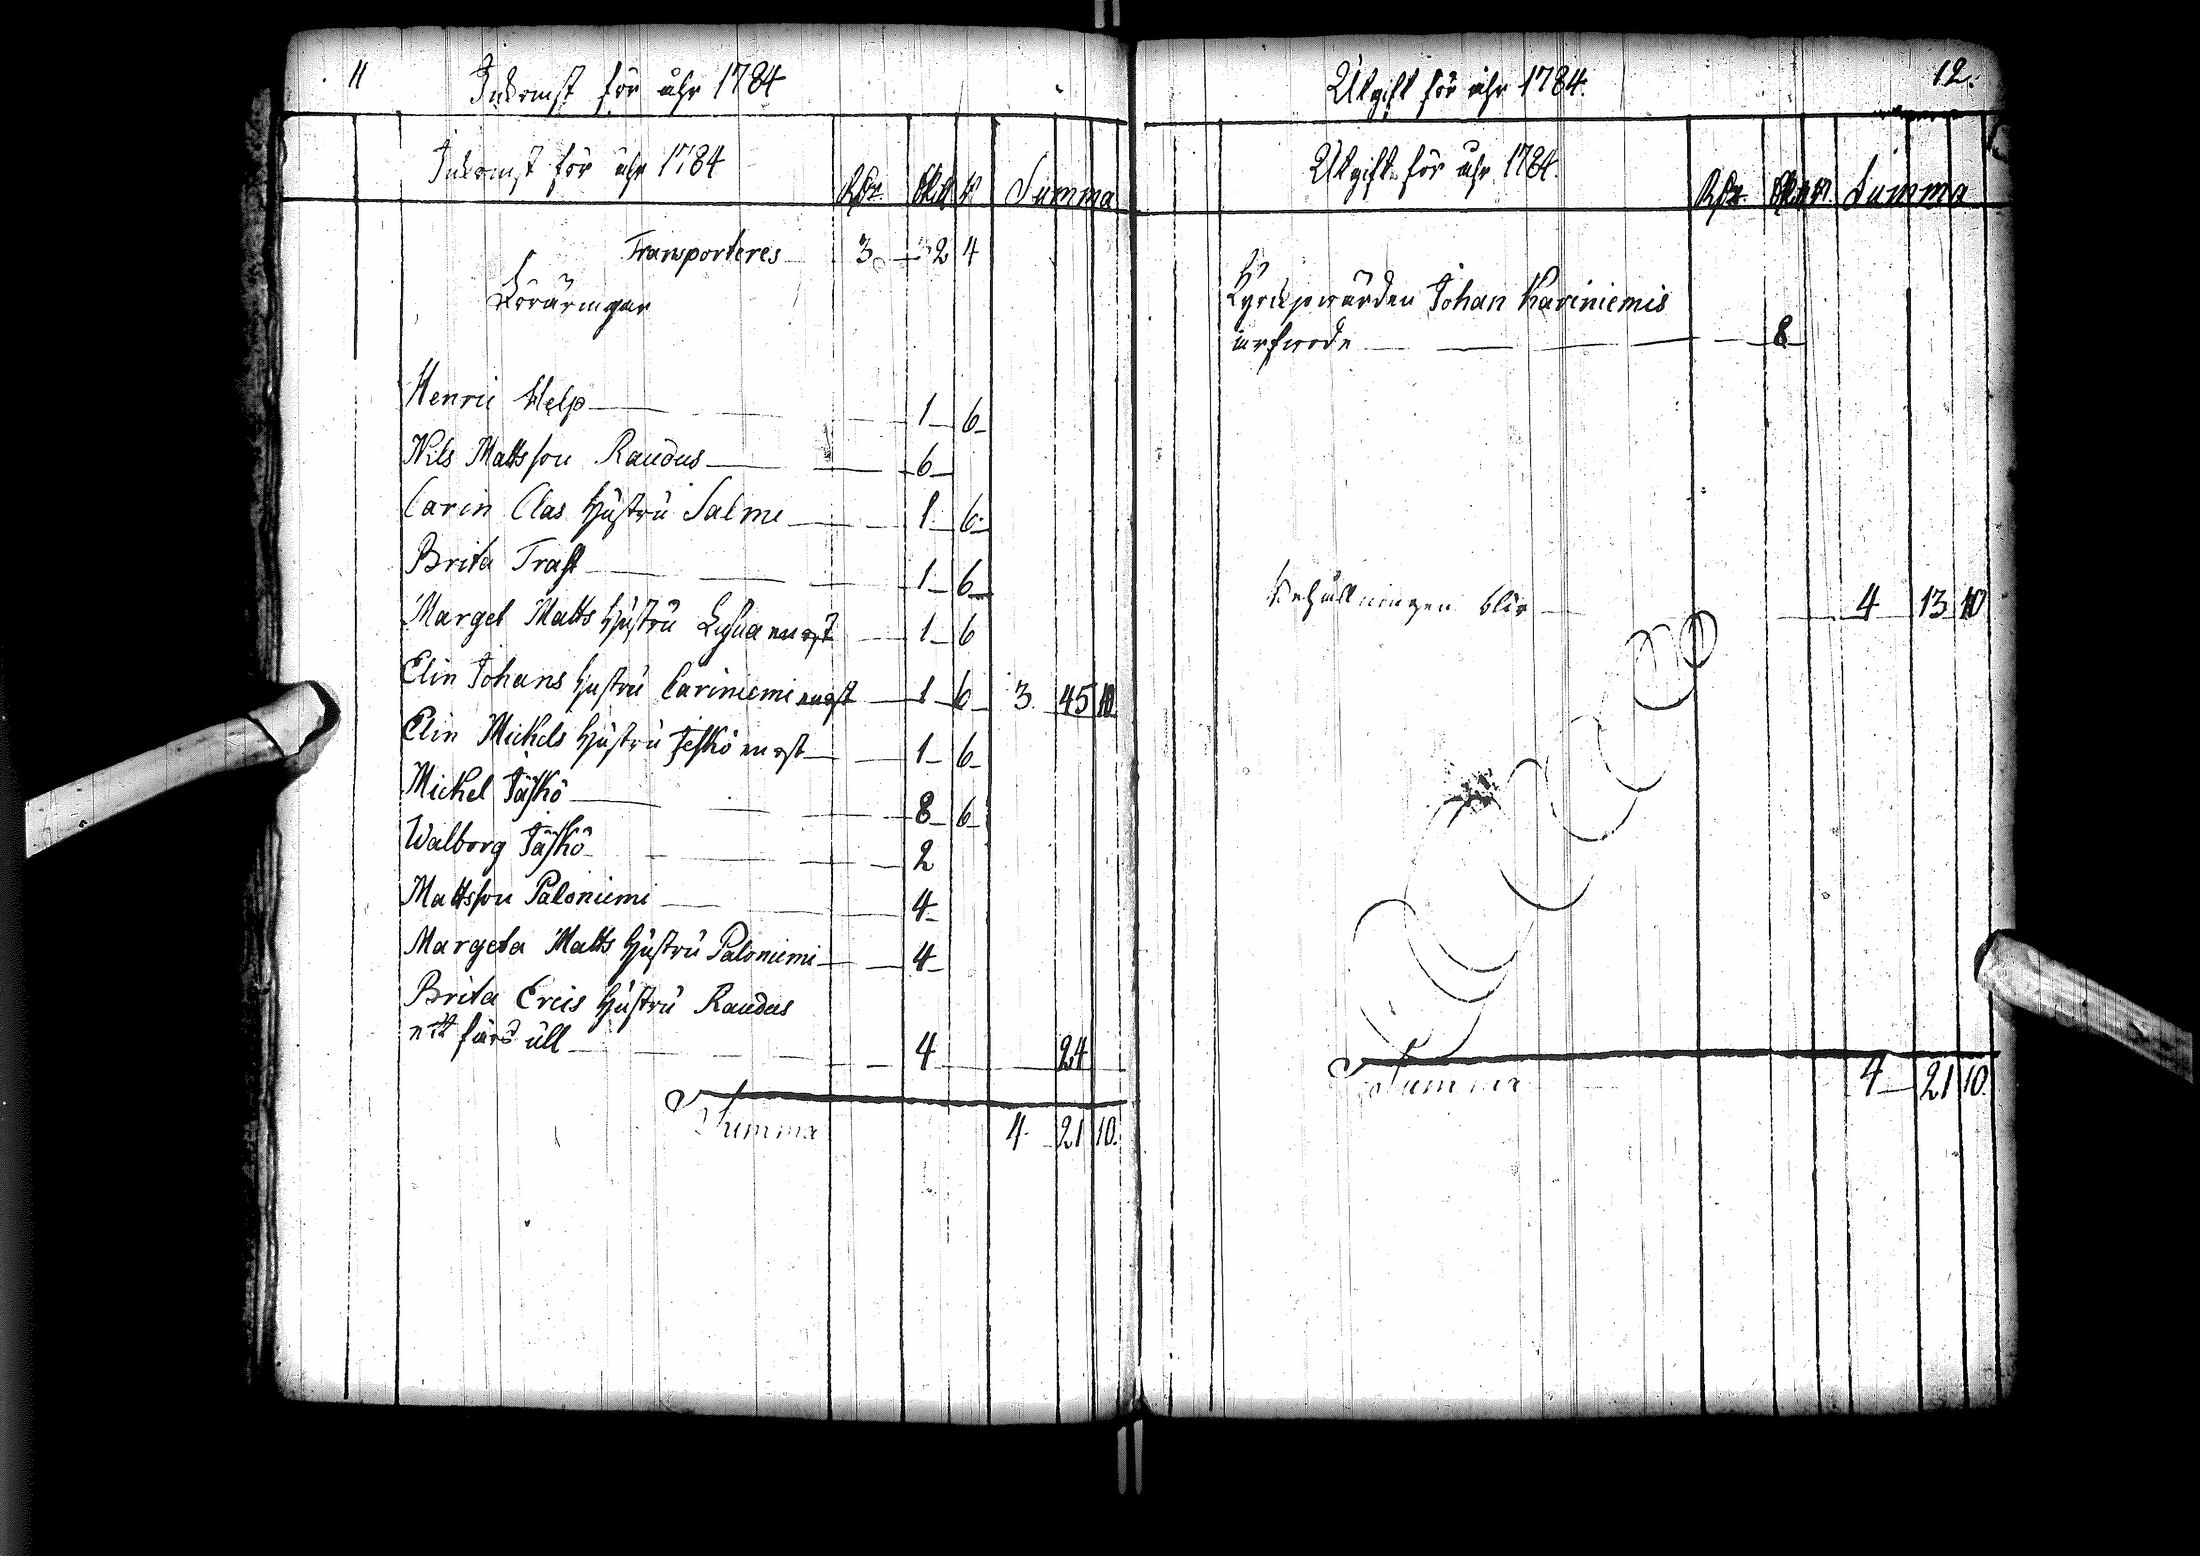 11
Inkomst för åhr 1784
Inkomst för åhr 1784 Rdr. Skill r. Summa
Transporteres 3 32 4
Föräringar
Henric Help 1 6
Nils Matsson Raudus 6
Carin Clas Hustru Salmi 1 6
Brita Trast 1 6
Marget Matts Hustru 1 6
Elin Johans Hustru Cariniemi 1 6 3 45 10
Elin Michels Hustru Jeskö 1 6
Michel Jäskö 8 6
Walborg Jäskö 2
Mattsson Paloniemi 4
Margeta Matts Hustru Paloniemi 4
Brita Erics Hustru Raudus
ett får ull 4 24
Summa 4 21 10
12.
Utgift för åhr 1784.
Utgift för åhr 1784. Rdr. Skill r. Summa
Kyrckowärden Johan Kariniemis
arfwode 8
Behållningen blir 4 13 10
Summa 4 21 10